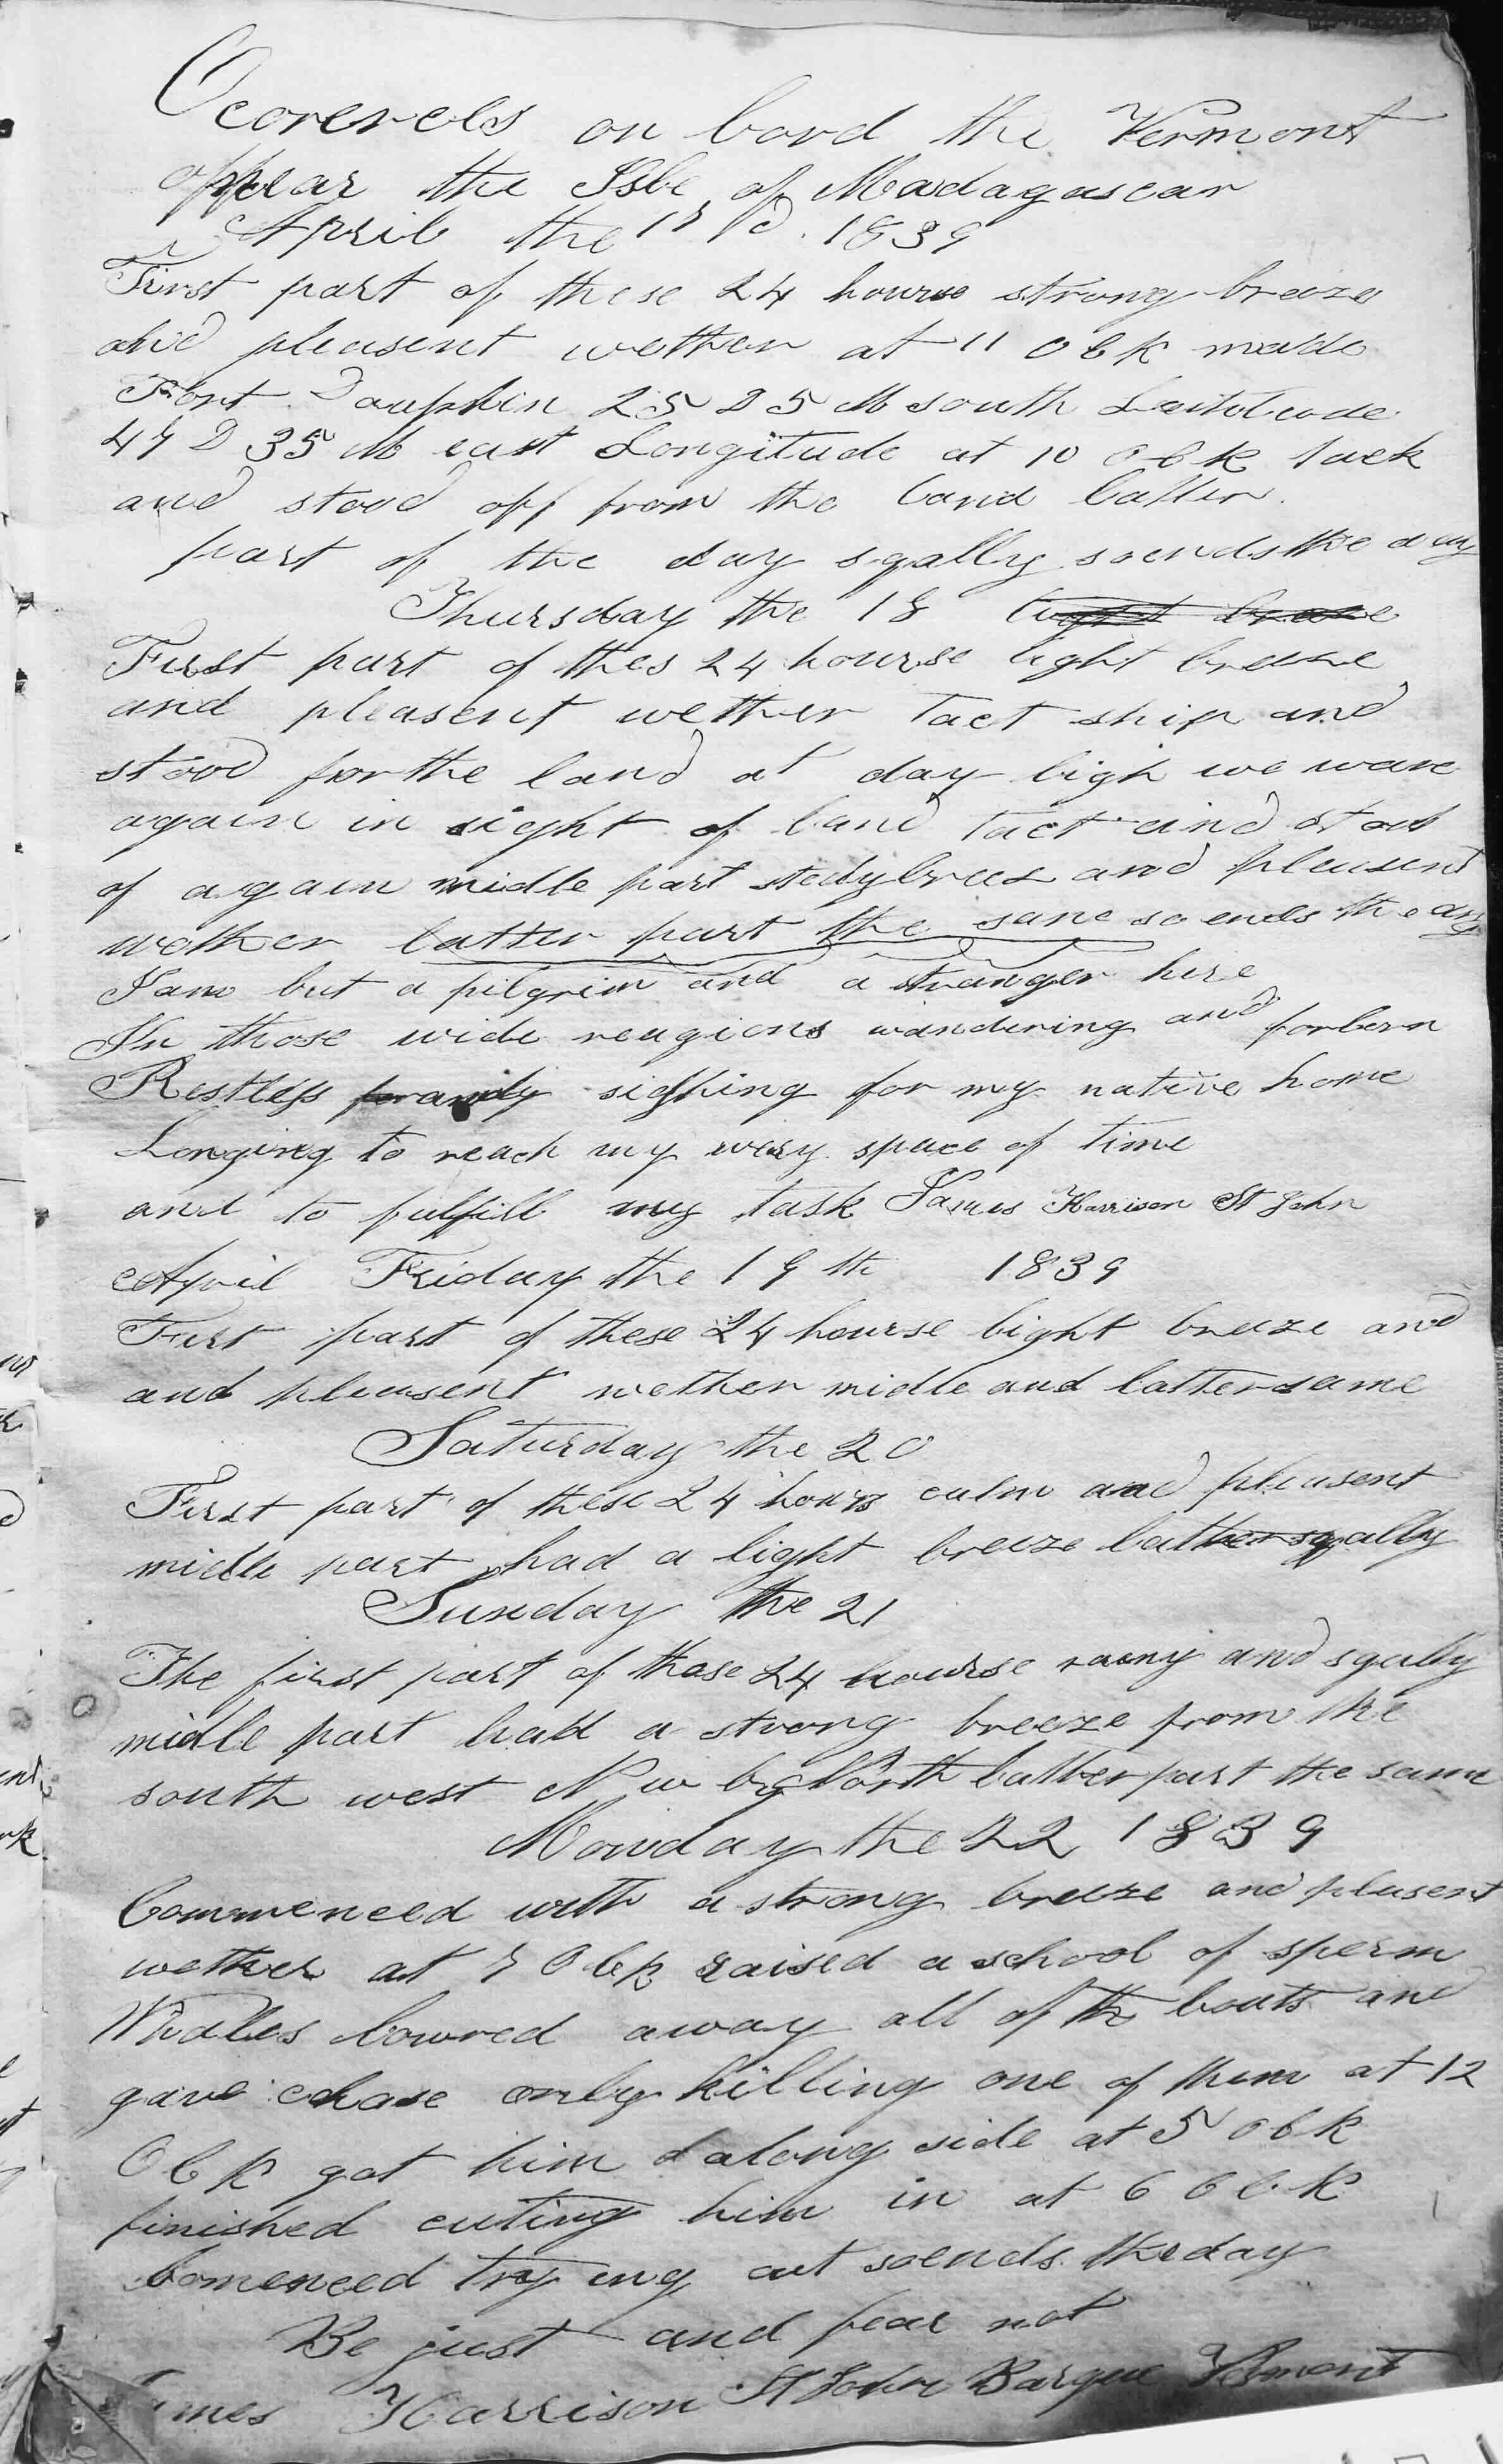 Ocorencls on bord the Vermont
off lear the Isle of Madagascar
April the 17 d. 1839
First part of these 24 hourse strong breeze
and pleasent wether at 11 oclk made
Fort Dauphin 25 D 5 M south Lattitude
47 D 35 M east Longitude at 10 oclk tack
and stood off from the land latter
part of the day sqally so ends the day
Thursday the 18 light breeze
First part of thes 24 hourse light breeze
and pleasent wether tact ship and
stood for the land at day ligh we ware
again in sight of land tact and stod
of again midle part stedy breez and pleasent
wether latter part the same so ends the day
I am but a pilgrim and a stranger here
In those wide reagions wandering and forlorn
Restless sighing for my native home
Longing to reach my wery space of time
and to fulfill my task James Harrison St John
April Friday the 19 th 1839
First part of these 24 hourse light breeze and
and pleasent wether midle and latter same
Saturday the 20
First part of these 24 hours calm and pleasent
midle part had a light breeze latter sqally
Sunday the 21
The first part of those 24 hourse rainy and sqally
midle part had a strong breeze from the
south west N w by North latter part the same
Monday the 22 1839
Commenced with a strong breeze and plesent
wether at 7 Oclk raised a school of sperm
Whales lowred away all of the bouts and
gave chase only killing one of them at 12
Oclk got him along side at 5 oclk
finished cuting him in at 6 Oclk
Comenced trying out so ends the day
Be just and fear not
James Harrison St John Barque Vermont